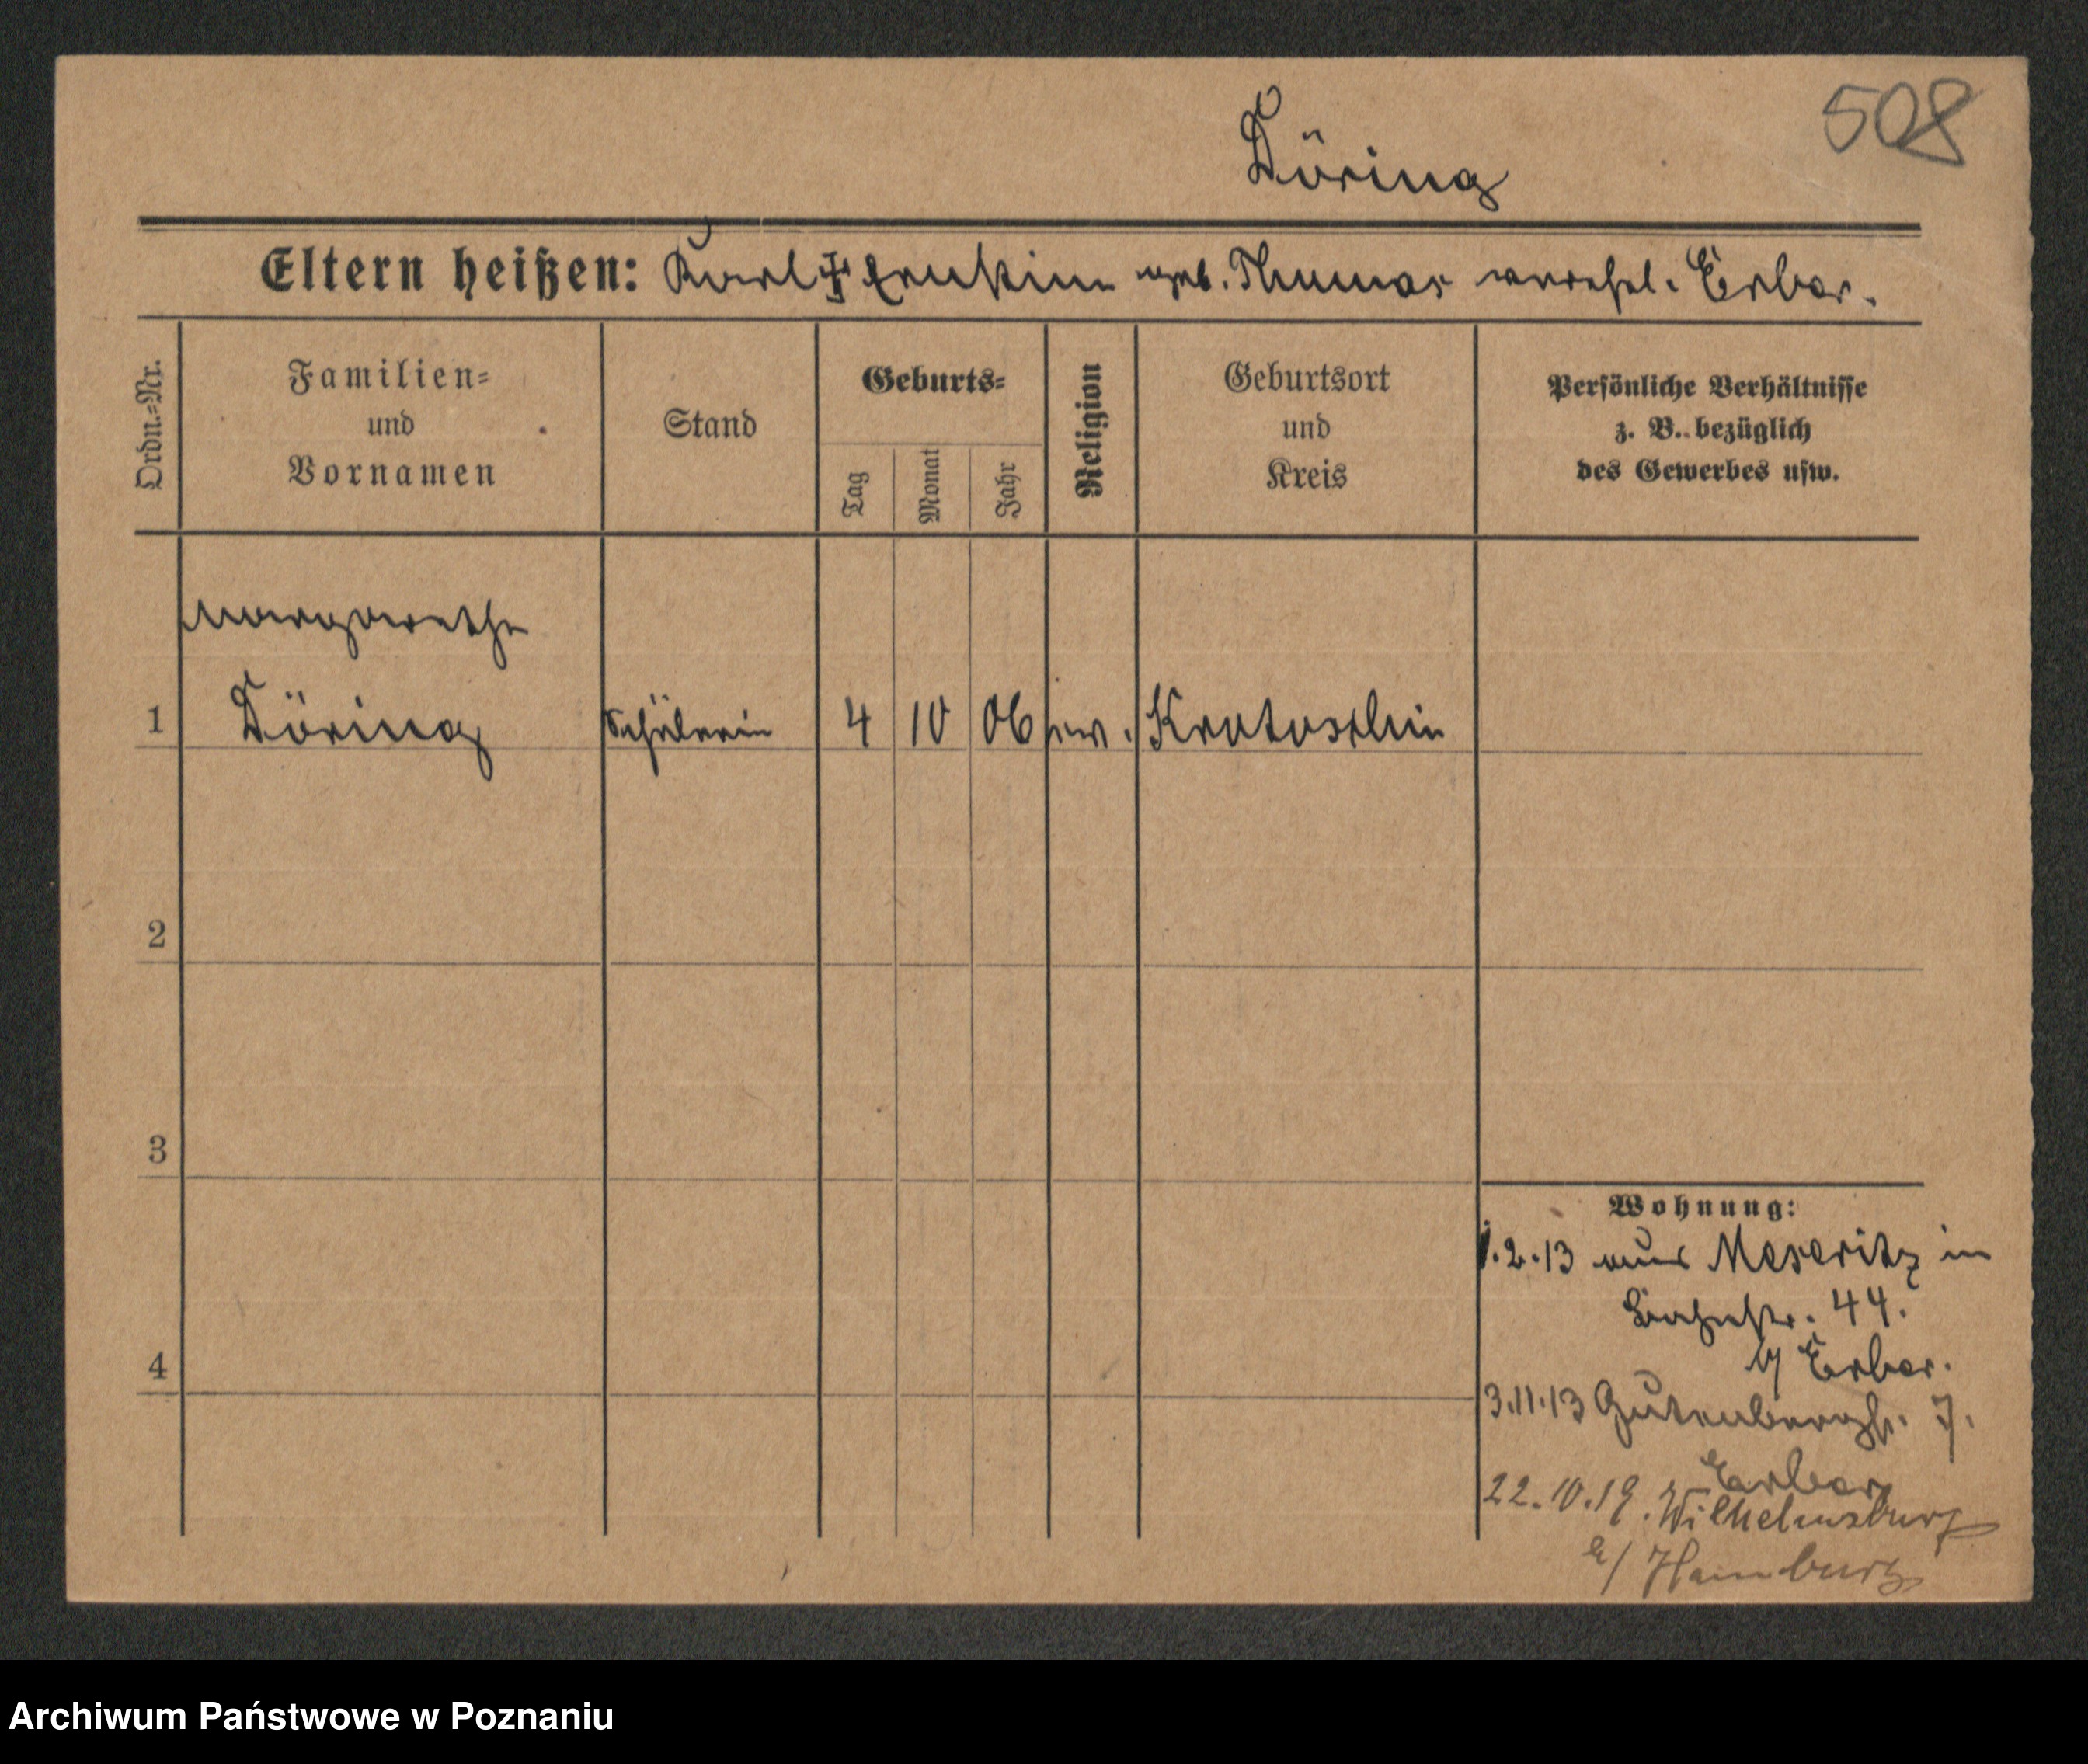 508
Döring
Eltern heißen: Karl † Ernstine geb. Thomas verehel. Erber.
Ordn.-Nr.
Familien-
und
Vornamen
Stand
Geburts-
Tag
Monat
Jahr
Religion
Geburtsort
und
Kreis
Persönliche Verhältnisse
z. B. bezüglich
des Gewerbes usw.
Margarethe
1 Döring Schülerin 4 10 06 ev. Krotoschin
2
3
4
Wohnung:
1.2.13 aus Meseritz in
Bahnstr. 44.
b/ Erber.
3.11.13 Gutenbergstr. 7.
Erber
22.10.19. Wilhelmsburg
b/ Hamburg
Archiwum Państwowe w Poznaniu